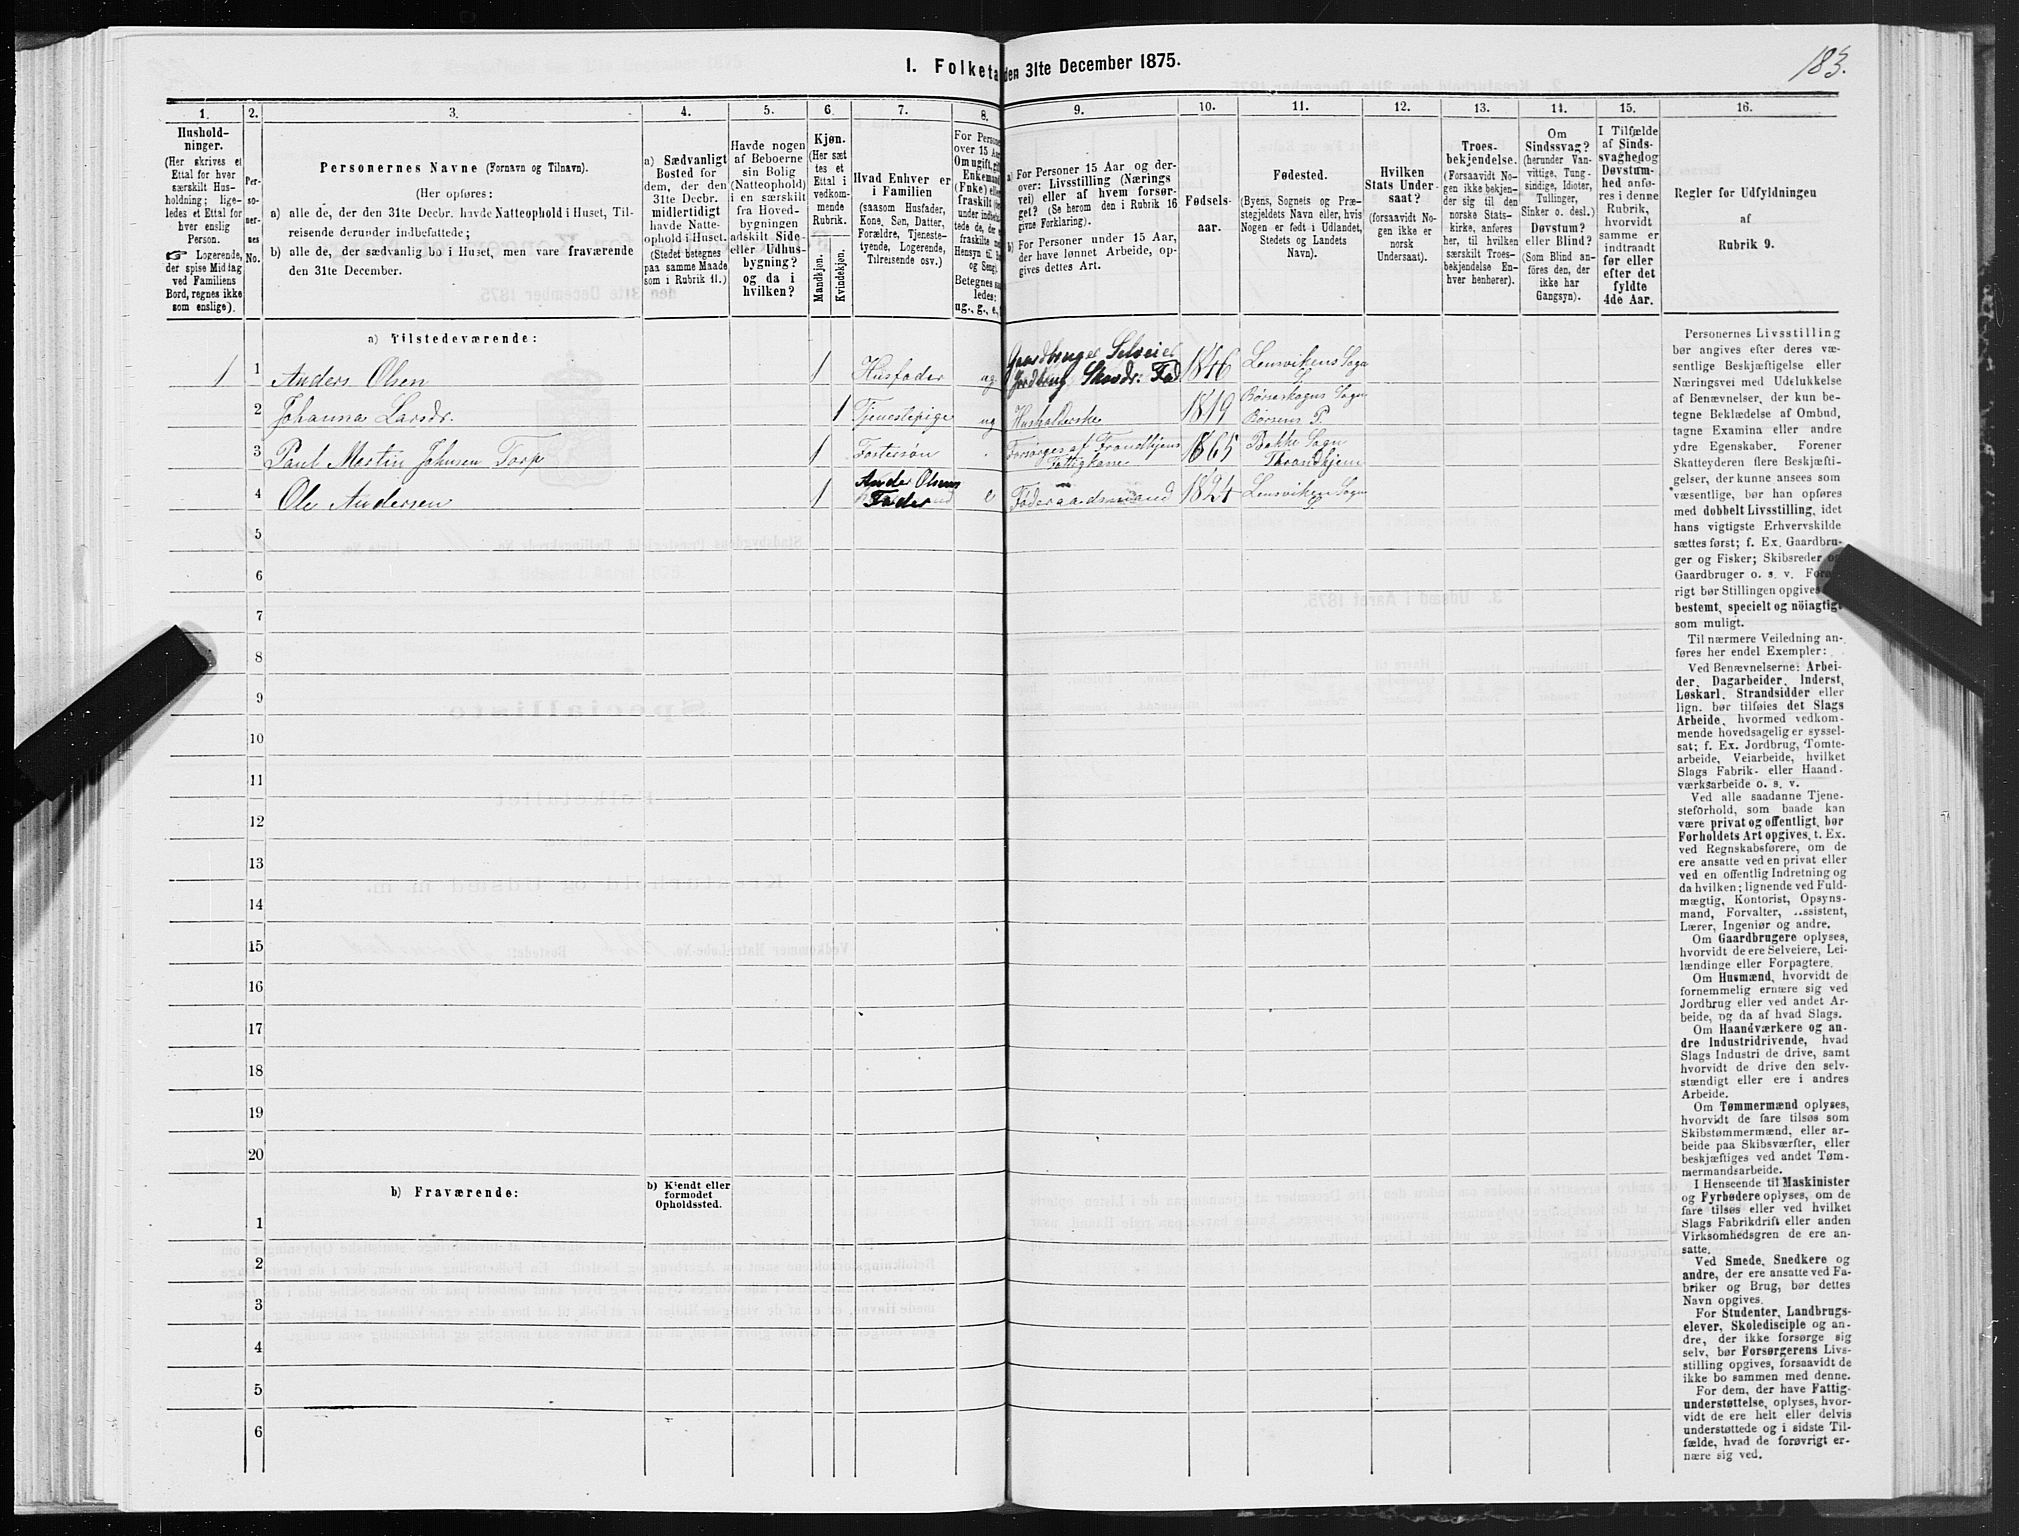 183.
1. Folketa den 31te December 1875.
1. 2. 3. 4. 5. 6. 7. 8. 9. 10. 11. 12. 13. 14. 15. 16.
Hushold-
ninger.
(Her skrives et
Ettal for hver
særskilt Hus-
holdning; lige-
ledes et Ettal for
hver enslig
Person.
☞ Logerende,
der spise Middag
ved Familiens
Bord, regnes ikke
som enslige).
Per-
so-
ner-
nes
No.
Personernes Navne (Fornavn og Tilnavn).
(Her opføres:
a) alle de, der den 31te Decbr. havde Natteophold i Huset, Til-
reisende derunder indbefattede;
b) alle de, der sædvanlig bo i Huset, men vare fraværende
den 31te December.
a) Sædvanligt
Bosted for
dem, der den
31te Decbr.
midlertidigt
havde Natte-
ophold i Huset.
(Stedet betegnes
paa samme Maade
som i Rubrik 11.)
Havde nogen
af Beboerne
sin Bolig
(Natteophold)
i en særskilt
fra Hoved-
bygningen
adskilt Side-
eller Udhus-
bygning?
og da i
hvilken?
Kjøn.
(Her sæt-
tes et
Ettal i
vedkom-
mende
Rubrik.
Mandkjøn.
Kvindekjøn.
Hvad Enhver er
i Familien
(saasom Husfader,
Kone, Søn, Datter,
Forældre, Tjeneste-
tyende, Logerende,
Tilreisende osv.)
For Persone
over 15 Aa
Om ugift, gif
Enkemand
(Fnke) elle
fraskilt
under indbefa
tede de, der e
fraskilte
Hensyn til B
og Seng).
Betegnes sa
ledes:
ug., g., e.,
a) For Personer 15 Aar og der-
over: Livsstilling (Nærings
vei) eller af hvem forsør-
get? (Se herom den i Rubrik 16
givne Forklaring).
b) For Personer under 15 Aar,
der have lønnet Arbeide, op-
gives dettes Art.
Fødsels-
aar.
Fødested.
(Byens, Sognets og Præ-
stegjeldets Navn eller, hvis
Nogen er født i Udlandet,
Stedets og Landets
Navn).
Hvilken
Stats Under-
saat?
(forsaavidt No-
gen ikke er
norsk
Undersaat).
Troes-
bekjendelse.
(Forsaavidt No-
gen ikke bekjen-
der sig til den
norske Stats-
kirke, anføres
her, til hvilken
særskilt Troes-
bekjendelse En-
hver henhører).
Om
Sindssvag?
(herunder Van-
vittige, Tung-
sindige, Idioter,
Tullinger,
Sinker o. desl.)
Døvstum?
eller Blind?
(Som Blind an-
føres den, der
ikke har
Gangsyn).
I Tilfælde
af Sinds-
svaghed og
Døvstum-
hed anfø-
res i denne
Rubrik,
hvorvidt
samme er
indtraadt
før eller
efter det
fyldte
4de Aar.
Regler for Udfyldningen
af
Rubrik 9.
a) Tilstedeværende:
1 1 Anders Olsen 1 Husfader ug Gaardbruger Selveier Jordbrug Skovdr: Fød 1846 Lensvikens Sogn
2 Johanna Larsdr. 1 Tjenestepige ug Husholderske 1849 Børseskogns Sogn Børsens P.
3 Paul Martin Johnsen Torp 1 Fostersøn Forsørges af Trondhjems Fattigkasse 1865 Bakke Sogn Throndhjem
4 Ole Andersen 1 Ander Olsens Fader e Føderaadsmand 1824 Lensviken Sogn
5
6
7
8
9
10
11
12
13
14
15
16
17
18
19
20
b) Fraværende:
b) Kjendt eller
formodet
Opholdssted.
1
2
3
4
5
6
Personernes Livsstilling
bør angives efter deres væ-
sentlige Beskjæftigelse eller
Næringsvei med Udelukkelse
af Benævnelser, der kun be-
tegne Beklædelse af Ombud,
tagne Examina eller andre
ydre Egenskaber. Forener
Skatteyderen flere Beskjæfti-
gelser, der kunne ansees som
væsentlige, bør han opføres
med dobbelt Livsstilling, idet
hans vigtigste Erhvervskilde
sættes først; f. Ex. Gaardbru-
ger og Fisker; Skibsreder o
Gaardbruger o. s. v. Forø
rigt bør Stillingen opgives
bestemt, specielt og nöiagtigt
som muligt.
Til nærmere Veiledning an-
føres her endel Exempler:
Ved Benævnelserne: Arbei-
der, Dagarbeider, Inderst,
Løskarl, Strandsidder eller
lign. bør tilføies det Slags
Arbeide, hvormed vedkom-
mende hovedsagelig er syssel-
sat; f. Ex. Jordbrug, Tomte-
arbeide, Veiarbeide, hvilket
Slags Fabrik- eller Haand-
værksarbeide o. s. v.
Ved alle saadanne Tjene-
steforhold, som baade kan
være privat og offentligt, bør
Forholdets Art opgives, t. Ex.
ved Regnskabsførere, om de
ere ansatte ved en privat eller
ved en offentlig Indretning og
da hvilken; lignende ved Fuld-
mægtig, Kontorist, Opsyns-
mand, Forvalter, Assistent,
Lærer, Ingeniør og andre.
Om Gaardbrugere oplyses,
hvorvidt de ere Selveiere, Lei-
lændinge eller Forpagtere.
Om Husmænd, hvorvidt de
fornemmelig ernære sig ved
Jordbrug eller ved andet Ar-
beide, og da af hvad Slags.
Om Haandværkere og an-
dre Industridrivende, hvad
Slags Industri de drive, samt
hvorvidt de drive den selv-
stændigt eller ere i andres
Arbeide.
Om Tømmermænd oplyses,
hvorvidt de fare tilsøs som
Skibstømmermænd, eller ar-
beide paa Skibsværfter, eller
beskjæftiges ved andet Tøm-
mermandsarbeide.
I Henseende til Maskinister
og Fyrbødere oplyses, om de
fare tilsøs eller ved hvilket
Slags Fabrikdrift eller anden
Virksomhedsgren de ere an-
satte.
Ved Smede, Snedkere og
andre, der ere ansatte ved Fa-
briker og Brug, bør dettes
Navn opgives.
For Studenter, Landbrugs-
elever, Skoledisciple og an-
dre, der ikke forsørge sig
selv, bør Forsørgerens Livs-
stilling opgives, forsaavidt de
ikke bo sammen med denne.
For dem, der have Fattig-
understøttelse, oplyses, hvor-
vidt de ere helt eller delvis
understøttede og i sidste Til-
fælde, hvad de forøvrigt er-
nære sig ved.